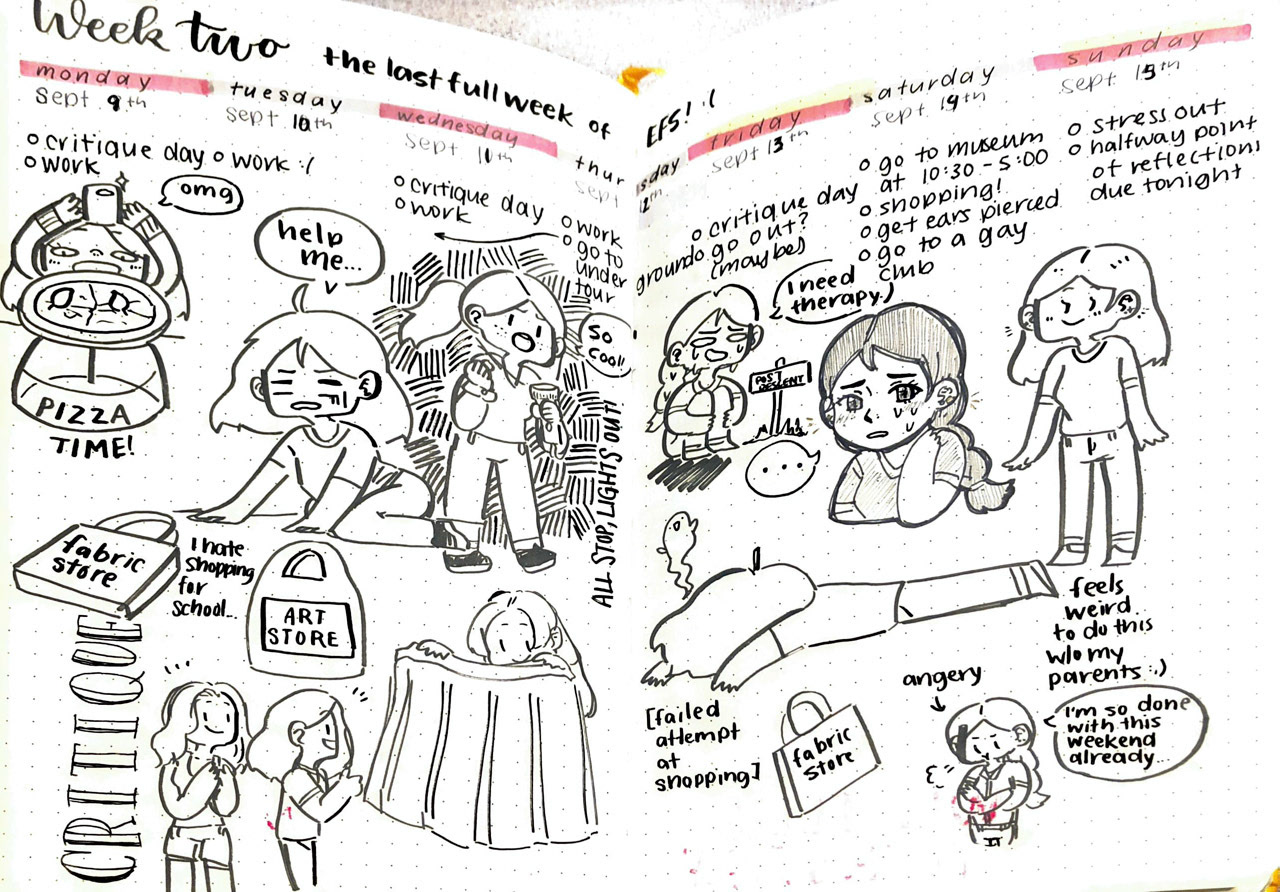 Week two the last full week of
EFS! :(
monday
sept 9th
critique day
work
tuesday
sept 10th
work :/
wednesday
sept 11th
critique day
work
thur
sept
sday
12th
work
go to
under
tour
ground
friday
sept 13th
critique day
go out?
(maybe)
saturday
sept 14th
go to museum
at 10:30-5:00
shopping!
get ears pierced
go to a gay
club
sunday
sept 15th
stress out
halfway point
of reflections
due tonight
omg
PIZZA
TIME!
help
me...
so
cool
ALL STOP, LIGHTS OUT!
fabric
store
I hate
shopping
for
school...
ART
STORE
CRITIQUE
I need
therapy:)
POST
...
[failed
attempt
at
shopping]
fabric
store
feels
weird
to do this
w/o my
parents :,)
angery
I'm so done
with this
weekend
already...